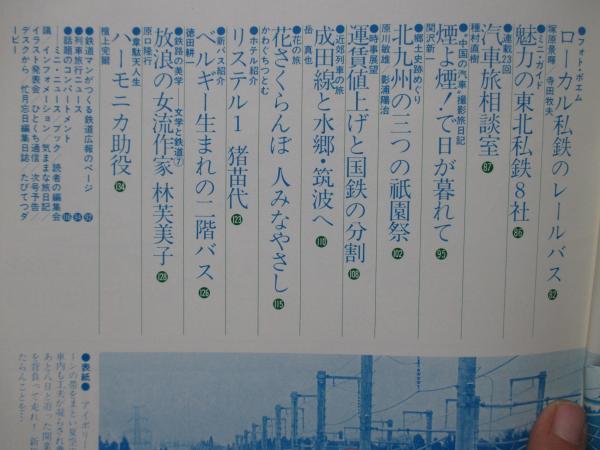 ●フォト・ポエム
塚原景暉 寺田牧夫
ローカル私鉄のレールバス 82
●ミニ・ガイド
魅力の東北私鉄8社 86
●連載23回
種村直樹
汽車旅相談室 87
●“中国の汽車”撮影旅日記
関沢新一
煙よ煙！で日が暮れて 95
●郷土史跡めぐり
原川敏雄 影浦陽治
北九州の三つの祇園祭 102
●時事展望
運賃値上げと国鉄の分割 108
●近郊列車の旅
岳真也
成田線と水郷・筑波へ 110
●花の旅
かわぐちつとむ
花さくらんぼ 人みなやさし 115
●ホテル紹介
リステル1 猪苗代 123
●新バス紹介
徳田耕一
ベルギー生まれの二階バス 126
●鉄路の美学 文学と鉄道⑦
原口隆行
放浪の女流作家 林芙美子 128
●韋駄天人生
檀上完爾
ハーモニカ助役 134
●鉄道マンがつくる鉄道広報のページ 92
●列車旅行ニュース 94
●話題のコンパートメント 118
ミニ・ミニ・スナック／読者の編集会
議／インフォメーション／気ままな旅日記／
イラスト発表会／ひとくち通信／次号予告／
デスクから 忙月忘日編集日誌／たびてつダ
ービー
●表紙● アイボリー
ーンの帯をまとい夏空
車内も工夫が凝らされ
あと八日と迫った開業
を背負って走れ！ 新
たらんことを